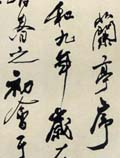 蘭亭序
和九年歲
春之初會于